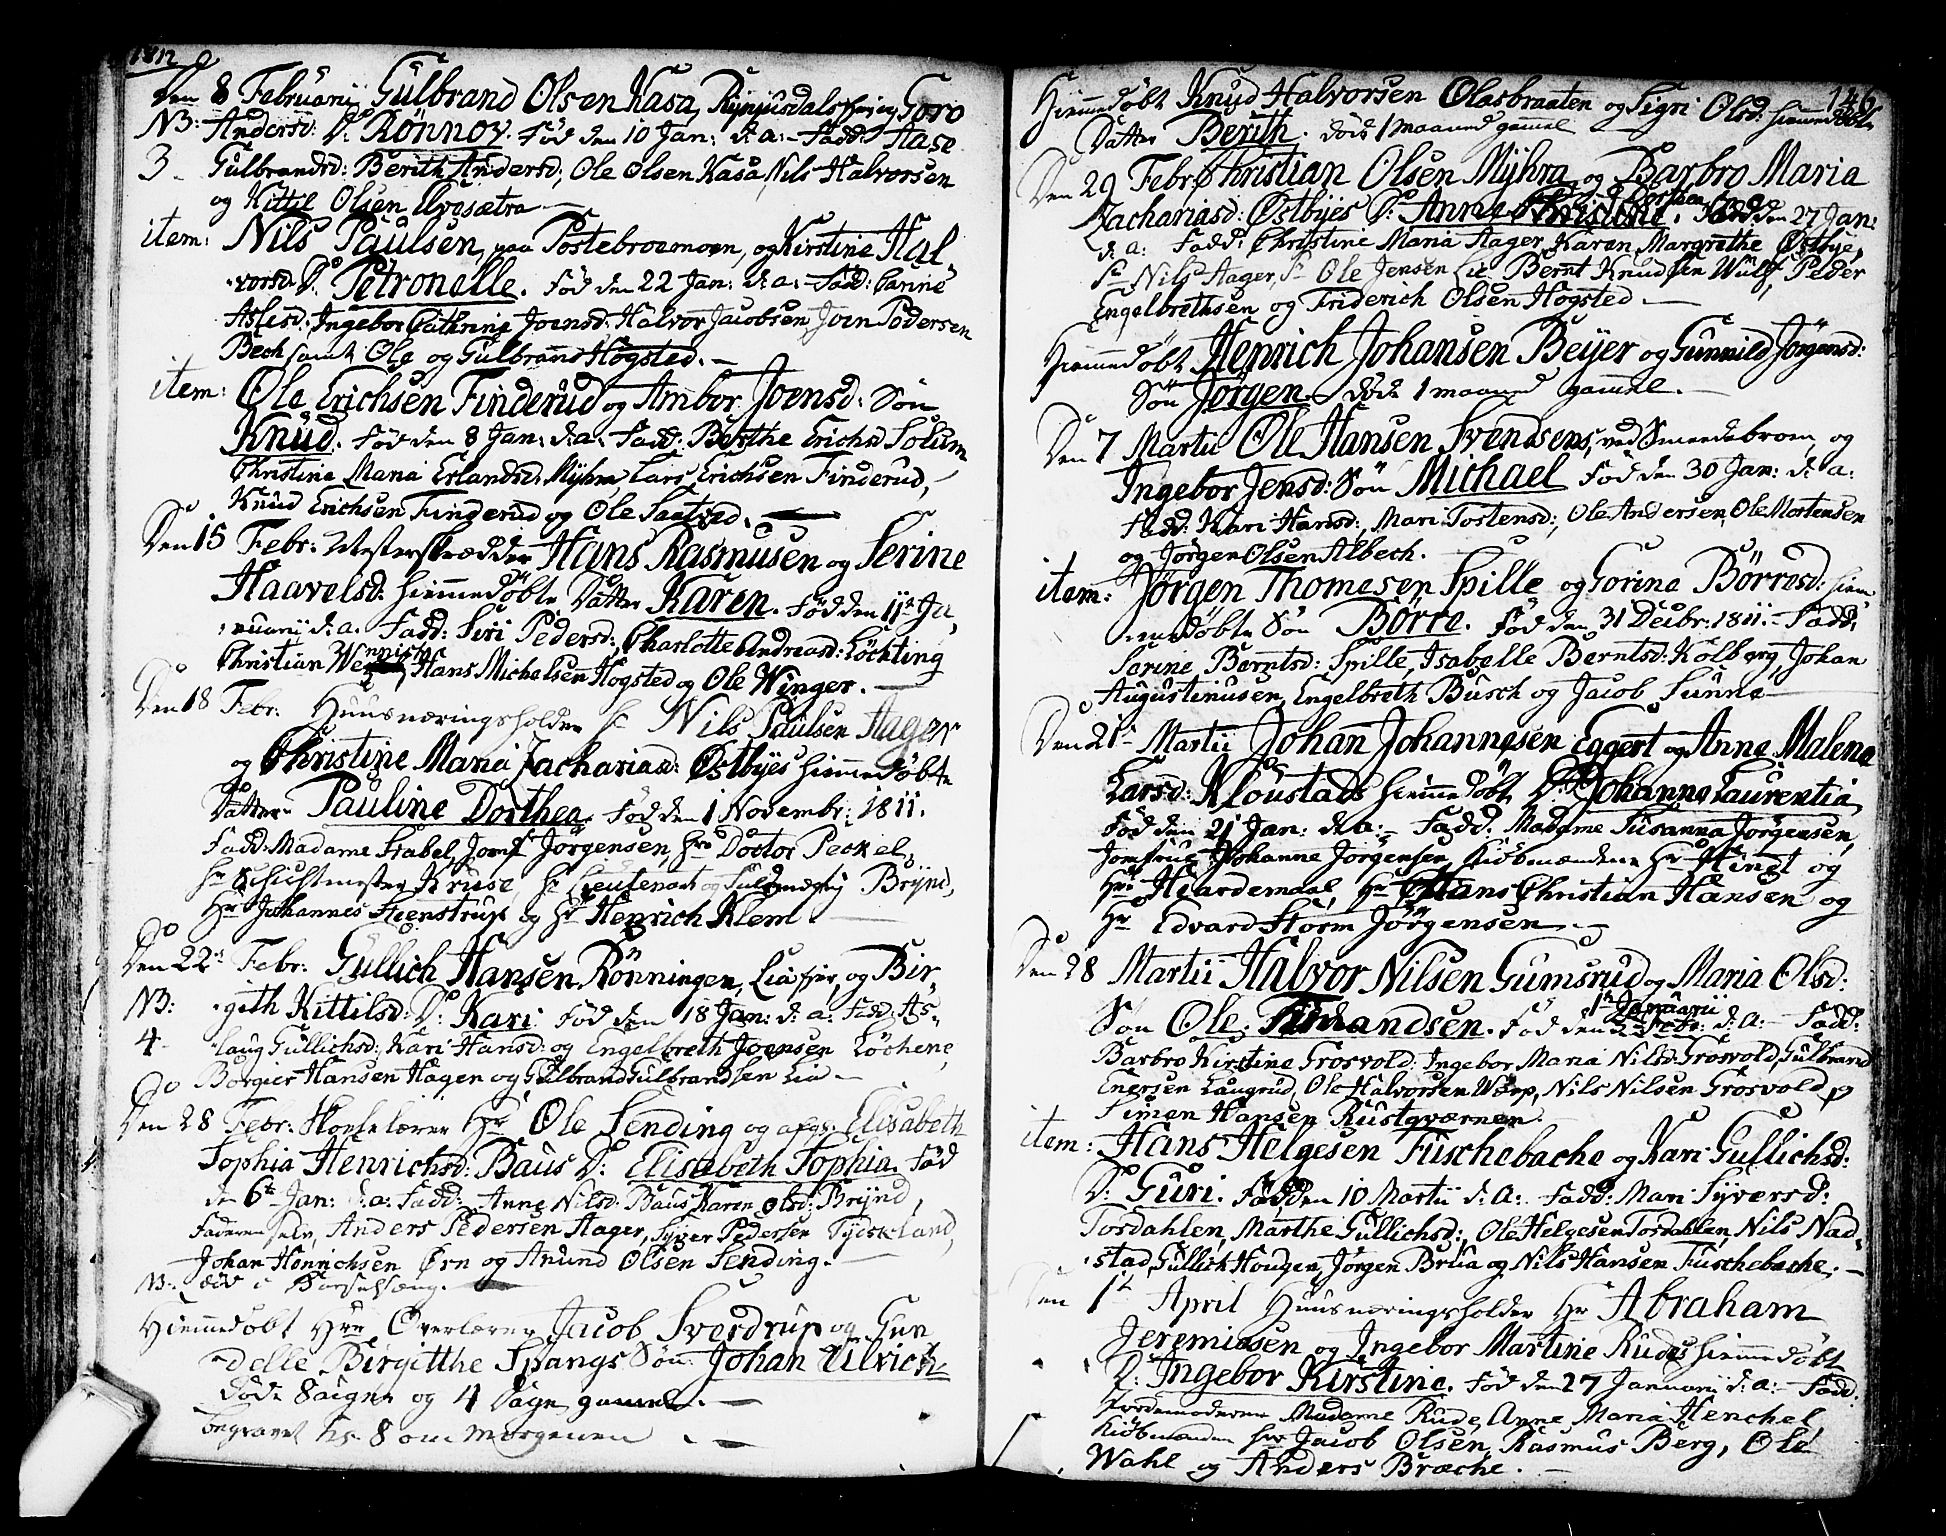 1812
Den 8 Februarii Gulbrand Olsen Kasa, og Goro
NB: Andersd: D: Rönnov. Föd den 10 Jan: d: a:- Fadd: Aase
3- Gulbrandsd: Berith Andersd; Ole Olsen Kasa, Nils Halvorsen
og Kittil Olsen Elvesætra
item: Nils Paulsen, paa Postebroemoen, og Kirstine Hal-
-vorsd: D. Petronelle. Föd den 22 Jan: d: a:- Fadd: Carine
Aslesd: Ingebor Cathrine Joensd: Halvor Jacobsen, Joen Pedersen
Bech samt Ole og Gulbrand Hogsted.-
item: Ole Erichsen Finderud og Ambor Joensd: Sön
Knud. Föd den 8 Jan: d: a: Fadd: Berthe Erichsd Solum,
Christine Maria Erlandsd: Myhra Lars Erichsen Finderud,
Knud Erichsen Finderud og Ole Saatved.
Den 15 Febr: Mesterskrædder Hans Rasmusen og Serine
Haavelsd: hiemmedöbte Datter Karen. Föd den 11te Ja-
-nuarii d: a. Fadd: Siri Pedersd: Charlotte Andreasd: Löchting
Christian Hans Michelsen Hogsted og Ole Winger.-
Den 18 Febr: Huusnæringsholder Hr Nils Paulsen Aager
og Christine Maria Zachariasd: Østbyes hiemmedöbte
Datter Pauline Dorthea. Föd den 1 Novembr: 1811.
Fadd: Madame Isabel, Jomf Jörgensen, Hrr Doctor Peckel,
Hr Schichtmester Kruse, Hr Lieutenant og Fuldmægtig Brynd,
Hr Johannes Steenstrup og Hr Henrich Klem
Den 22de Febr: Gullich Hansen Rönningen, og Bir-
NB: -gith Kittilsd: D: Kari. Föd den 18 Jan: d: a: Fadd: As-
4- laug Gullichsd: Kari Hansd: og Engelbreth Joensen Löchene,
Borgier Hansen Hagen og Gulbrand Gulbrandsen Lia-
Den 28 Febr: Skolelærer Hr Ole Sending og afg: Elisabeth
Sophia Henrichsd: Baus D: Elisabeth Sophia. Föd
den 6te Jan: d: a: Fadd: Anne Nilsd: Baus Karen Olsd: Brynd,
Faderen selv, Anders Pedersen Aager, Syver Pedersen Tydskland,
Johan Henrichsen Ørn og Anund Olsen Sending.-
NB. död i Barselsæng.
Hiemmedöbt Hrr Overlærer Jacob Sverdrup og Gun
-delle Birgitthe Spangs Sön: Johan Ulrich
döde 8 uger og 4 Dage gammel.
begravet Kl. 8 om morgenen
146
Hiemmedöbt Knud Halvorsen Olasbraaten og Sigri Olsd: hiemmedöbte
Datter Berith. döde 1 maaned gammel
Den 29 Febr: Christian Olsen Myhra og Barbro Maria
Zachariasd: Østbyes D: Anne Christine. Föd den 27 Jan:
d: a: Fadd: Christine Maria Aager, Karen Margrethe Østbye,
Hr Nils Aager, Hr Ole Jensen Lie, Bernt Knudsen Wulf, Peder
Engelbrethsen og Friderich Olsen Hogsted.-
Hiemmedöbt Henrich Johansen Beyer og Gunnild Jörgensd:
Sön Jörgen. döde 1 maaned gammel.-
Den 7 Martii Ole Hansen Svendsens, ved Smeedebroen, og
Ingebor Jensd: Sön Michael Föd den 30 Jan: d: a:
Fadd: Hansd:, Mari Tostensd:, Ole Andersen, Ole Mortensen
og Jörgen Olsen Albech.
item: Jörgen Thomesen Spille og Gorine Börresd: hiem-
-medöbte Sön Börre. Föd den 31 Decbr: 1811.- Fadd:
Serine Berntsd: Spille, Isabelle Berntsd: Kolberg, Johan
Augustinusen, Engelbreth Busch og Jacob Sunne-
Den 21de Martii Johan Johannesen Eggert og Anne Malene
Larsd: Kloustads hiemmedöbt D: Johanne Laurentia,
Föd den 21 Jan: d: a:- Fadd: Madame Susanna Jörgensen,
Jomfrue Johanne Jörgensen, Kiöbmændene Hr Hindt og
Hr Heardemaal, Hr Hans Christian Hansen og
Hr Edvard Storm Jörgensen.-
Den 28 Martii Halvor Nilsen Gumsrud og Maria Olsd:
1te Januarii
Sön Ole. Föd den d: a:- Fadd:
Barbro Kirstine Grosvold: Ingebor Maria Nilsd: Grosvold, Gulbrand
Enersen Laugrud, Ole Halvorsen Warp, Nils Nilsen Grosvold og
Simen Hansen Rustgværnen.
item: Hans Helgesen Fuschebache og Kari Gullichsd:
D: Guri. Föd den 10 Martii d: a: Fadd: Mari Syversd:
Tordahlen, Marthe Gullichsd:, Ole Helgesen Tordahlen, Nils Nad-
-stad, Gullich Hougen, Jörgen Brua og Nils Hansen Fuschebache.-
Den 1te April Huusnæringsholder Hr Abraham
Jeremiasen og Ingebor Martine Rudes hiemmedöbt
D: Ingebor Kirstine. Föd den 27 Januarii d: a:- Fadd:
Jordemoderen Madame Rude, Anne Maria Henchel
Kiöbmanden Hrr Jacob Olsen, Rasmus Berg, Ole
Wahl og Anders Bræche.-